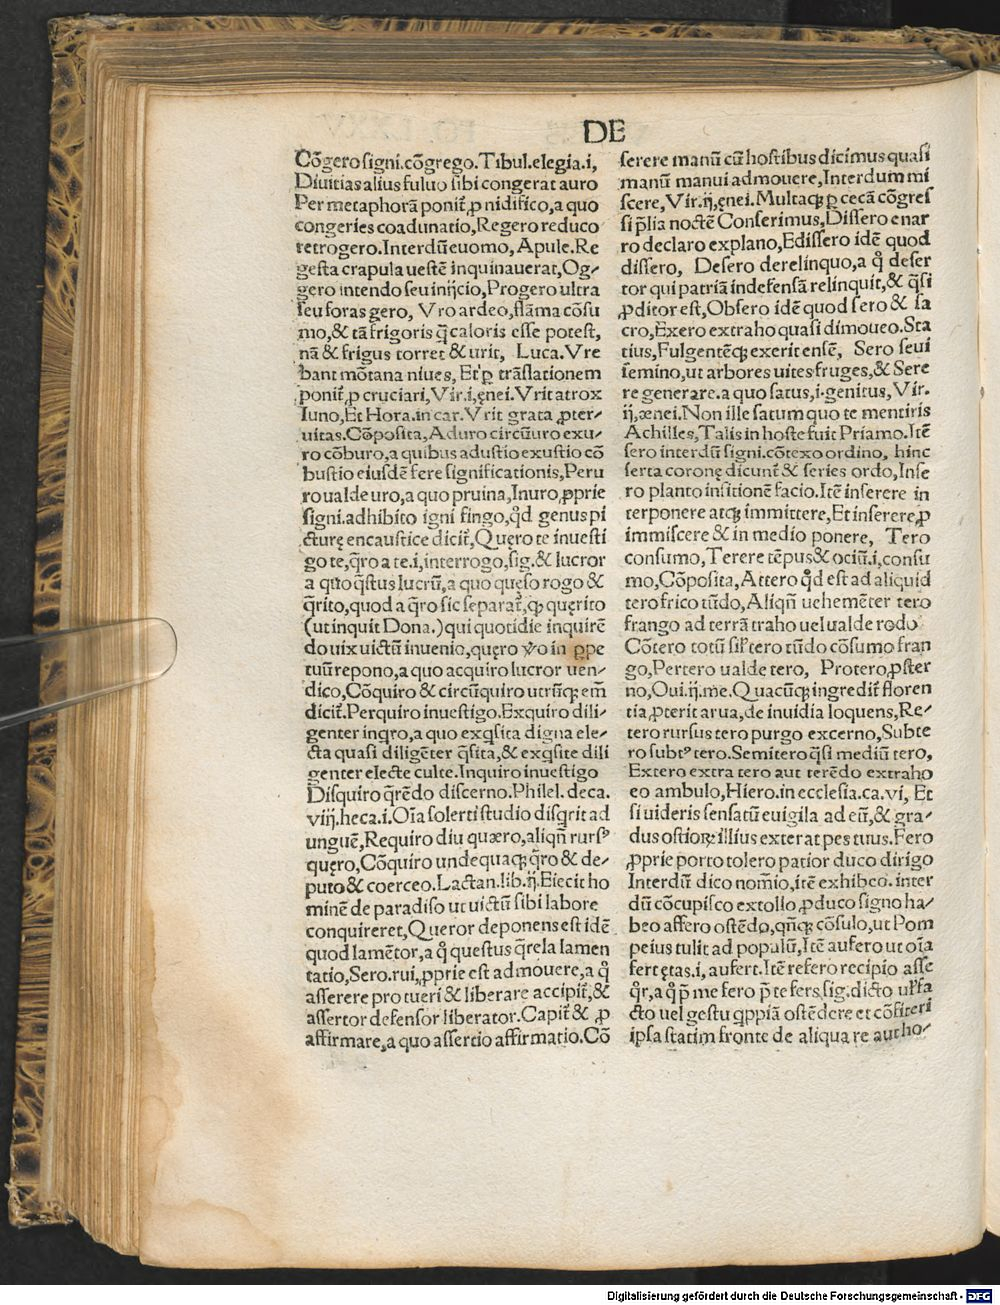 DE
Cõgero signi.cõgrego.Tibul.elegia.i,
Diuitias alius fuluo sibi congerat auro
Per metaphorã ponit̃,ꝓ nidifico,a quo
congeries coadunatio,Regero reduco
retrogero.Interdũ euomo, Apule.Re
gesta crapula uestẽ inquinauerat,Og-
gero intendo seu inijcio,Progero ultra
seu foras gero, Vro ardeo,flãma cõsu
mo,& tã frigoris q̃ caloris esse potest,
nã & frigus torret & urit, Luca.Vre
bant mõtana niues, Et ꝑ trãslationem
ponit̃,ꝓ cruciari,Vir.i,ęnei.Vrit atrox
Iuno,Et Hora.in car.Vrit grata ꝓter-
uitas.Cõposita,Aduro circũuro exu-
ro cõburo,a quibus adustio exustio cõ
bustio eiusdẽ fere significationis,Peru
ro ualde uro,a quo pruina,Inuro,ꝓprie
signi.adhibito igni fingo,qd̃ genus pi
cturę encaustice dicit̃,Quęro te inuesti
go te,q̃ro a te.i,interrogo,sig.& lucror
a quo q̃stus lucrũ,a quo quęso rogo &
q̃rito,quod a q̃ro sic separat̃,ꝙ quęrito
(ut inquit Dona.)qui quotidie inquirẽ
do uix uictũ inuenio,quęro ṽo in ꝑpe
tuũ repono,a quo acquiro lucror uen-
dico,Cõquiro & circũquiro utrũqꝫ em̃
dicit̃.Perquiro inuestigo.Exquiro dili-
genter inqro,a quo exqsita digna ele-
cta quasi diligẽter q̃sita,& exqsite dili
genter electe culte.Inquiro inuestigo
Disquiro q̃rẽdo discerno.Philel.deca.
viij.heca.i.Oĩa solerti studio disqrit ad
unguẽ,Requiro diu quæro,aliqñ rursꝰ
quęro,Cõquiro undequaqꝫ q̃ro & de-
puto & coerceo.Lactan.lib.ij.Eiecit ho
minẽ de paradiso ut uictũ sibi labore
conquireret,Queror deponens est idẽ
quod lamẽtor,a q̊ questus q̃rela lamen
tatio,Sero.rui,ꝓprie est admouere,a q̊
asserere pro tueri & liberare accipit̃,&
assertor defensor liberator.Capit̃ & ꝓ
affirmare,a quo assertio affirmatio.Cõ
serere manũ cũ hostibus dicimus quasi
manũ manui admouere,Interdum mi
scere,Vir.ij,ęnei.Multaqꝫ ꝑ cecã cõgres
si p̃lia noctẽ Conserimus,Dissero enar
ro declaro explano,Edissero idẽ quod
dissero, Desero derelinquo,a q̊ deser
tor qui patriã indefensã relinquit,& q̃si
ꝓditor est,Obsero idẽ quod sero & sa
cro,Exero extraho quasi dimoueo.Sta
tius,Fulgentẽqꝫ exerit ensẽ, Sero seui
semino,ut arbores uites fruges,& Sere
re generare.a quo satus,i.genitus,Vir.
ij,ænei.Non ille satum quo te mentiris
Achilles,Talis in hoste fuit Priamo.Itẽ
sero interdũ signi.cõtexo ordino, hinc
serta coronę dicunt̃ & series ordo,Inse
ro planto insitionẽ facio.Itẽ inserere in
terponere atqꝫ immittere,Et inserere,ꝓ
immiscere & in medio ponere, Tero
consumo,Terere tẽpus & ociũ.i,consu
mo,Cõposita,Attero qd̊ est ad aliquid
tero frico tũdo,Aliqñ uehemẽter tero
frango ad terrã traho uel ualde rodo
Cõtero totũ sil̃ tero tũdo cõsumo fran
go,Pertero ualde tero, Protero,ꝓster
no,Oui.ij.me.Quacũqꝫ ingredit̃ floren
tia,ꝓterit arua,de inuidia loquens,Re-
tero rursus tero purgo excerno,Subte
ro subtꝰ tero.Semitero q̃si mediũ tero,
Extero extra tero aut terẽdo extraho
eo ambulo,Hiero.in ecclesia.ca.vi, Et
si uideris sensatũ euigila ad eũ,& gra-
dus ostioꝝ illius exterat pes tuus.Fero
ꝓprie porto tolero patior duco dirigo
Interdũ dico nomĩo,itẽ exhibeo.inter
dũ cõcupisco extollo,ꝓduco signo ha-
beo affero ostẽdo,qñqꝫ cõsulo,ut Pom
peius tulit ad populũ,Itẽ aufero ut oĩa
fert ętas.i,aufert.Itẽ refero recipio asse
q̊r,a q̊ p̃ me fero p̃ te fers,sig.dicto ul̃ fa
cto uel gestu qppiã ostẽdere et cõfiteri
ipsa statim fronte de aliqua re autho-
Digitalisierung gefördert durch die Deutsche Forschungsgemeinschaft - DFG